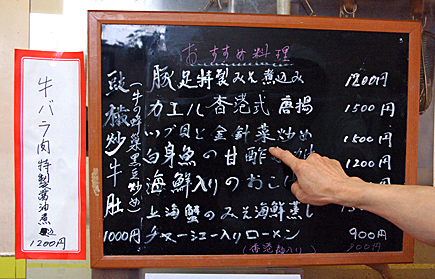 おすすめ料理
豚足特製みそ煮込み 1200円
カエル香港式唐揚 1500円
ツブ貝と金針菜炒め 1500円
白身魚の甘酢 1200円
海鮮入りのおこ
上海蟹のみそ海鮮蒸し
チャーシュー入りローメン 900円
(香港麺入り) 900円
豉椒炒牛肚 1000円
(牛の蜂の巣黒豆炒め)
牛バラ肉特製醤油煮込み
1200円